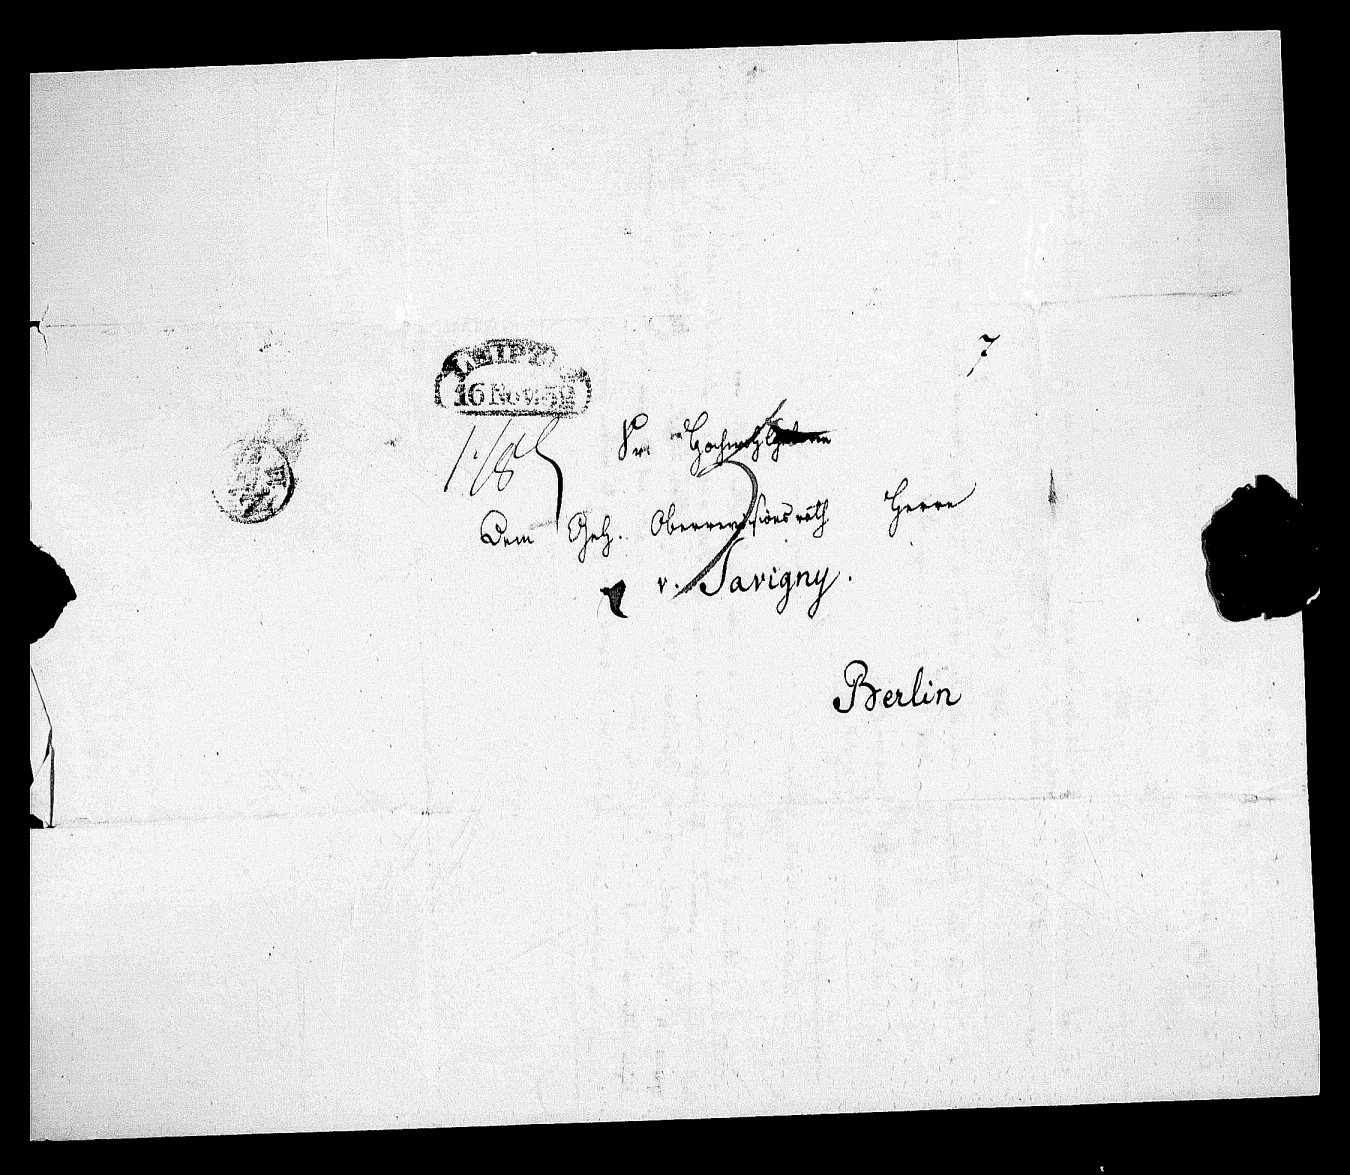 7
LEIPZIG
16 Nov. 30
Sr. Hochwohlgeboren
Dem Geh. Oberrevisionsrath Herrn
v. Savigny.
Berlin